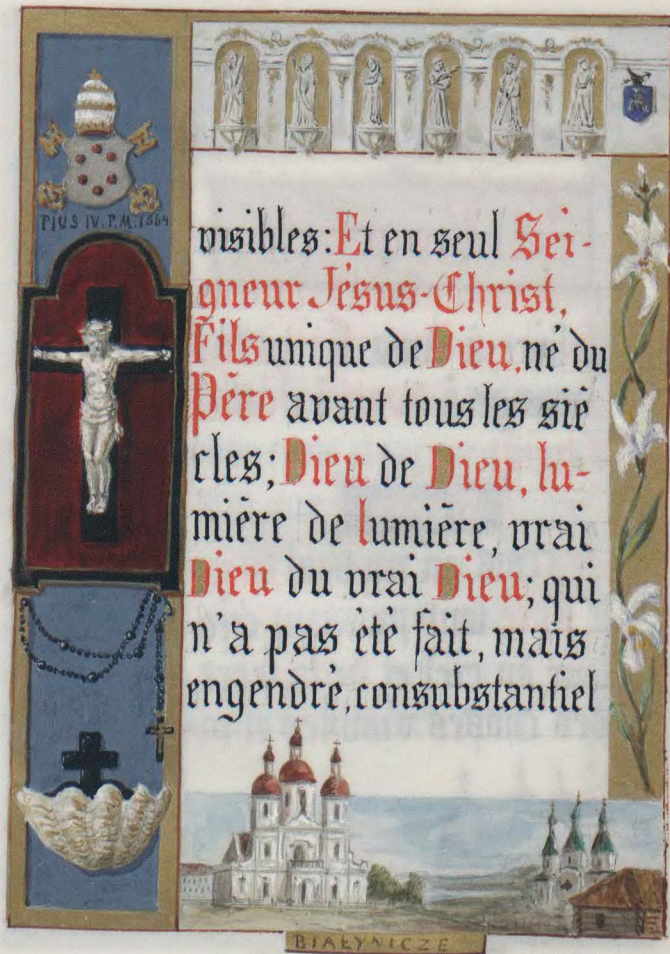 PIUS IV. P. M. 1564.
visibles: Et en seul Sei-
gneur Jésus-Christ,
Fils unique de Dieu, né du
Père avant tous les siè
cles; Dieu de Dieu, lu-
mière de lumière, vrai
Dieu du vrai Dieu; qui
n'a pas été fait, mais
engendré, consubstantiel
BIAŁYNICZE